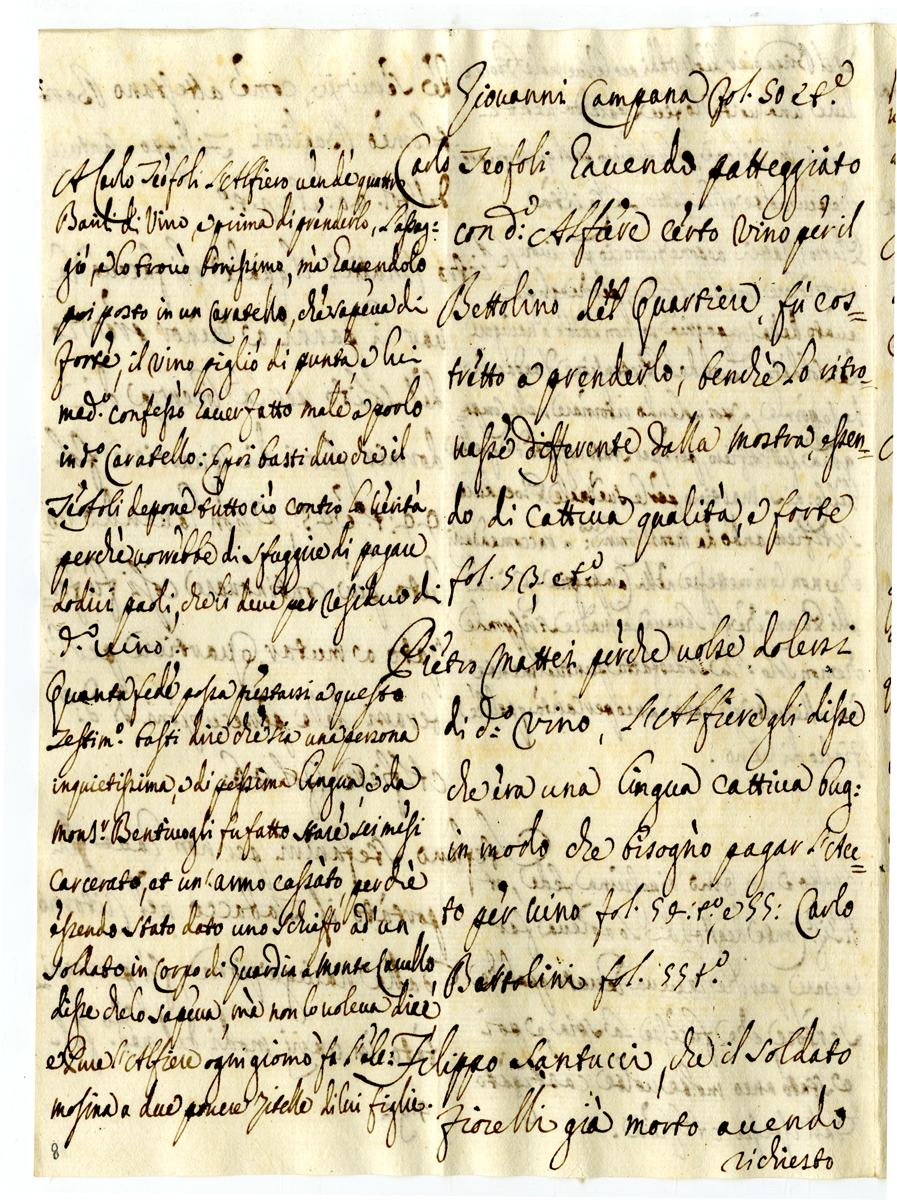 Giovanni Campana fol. 50 et.º
Carlo Teofoli havendo patteggiato
con d.º Alfiere certo vino per il
Bettolino del Quartiere, fù cos=
tretto a prenderlo; benchè lo ritro=
vasse differente dalla mostra, essen=
do di cattiva qualità, e forte
fol. 53. et.º
Pietro Mattei perche volse dolersi
di d.º vino, l'Alfiere gli disse
che era una lingua cattiva bug:
in modo che bisognò pagar l'Ace=
to per vino fol. 54: t.º, e 55: Carlo
Bartolini fol. 55 t.º
Filippo Santucci, che il soldato
Fiorelli già morto avendo
richiesto
A Carlo Teofoli l'Alfiero vendé quattro
Barili di Vino, e prima di prenderlo, l'assag=
giò, e lo trovò bonissimo, mà havendolo
poi posto in un Caratello, che sapeva di
forte, il vino pigliò di punta, e lui
med.º confessò haver fatto male a porlo
in d.º Caratello: E poi basti dire che il
Teofoli depone tutto ciò contro la verità
perchè vorrebbe di sfuggire di pagare
dodici paoli, che li deve per residuo di
d.º vino.
Quanta fede possa prestarsi a questo
Testim.º basti dire che sia una persona
inquietissima, e di pessima lingua, e da
Mons.r Bentivogli fu fatto stare sei mesi
carcerato, et un'anno cassato, perchè
essendo stato dato uno schiaffo ad un
soldato in Corpo di Guardia a Monte Cavallo,
disse che lo sapeva, mà non lo voleva dire
e pure l'Alfiere ogni giorno fa l'ele=
mosina a due povere Zitelle di lui figlie.
8